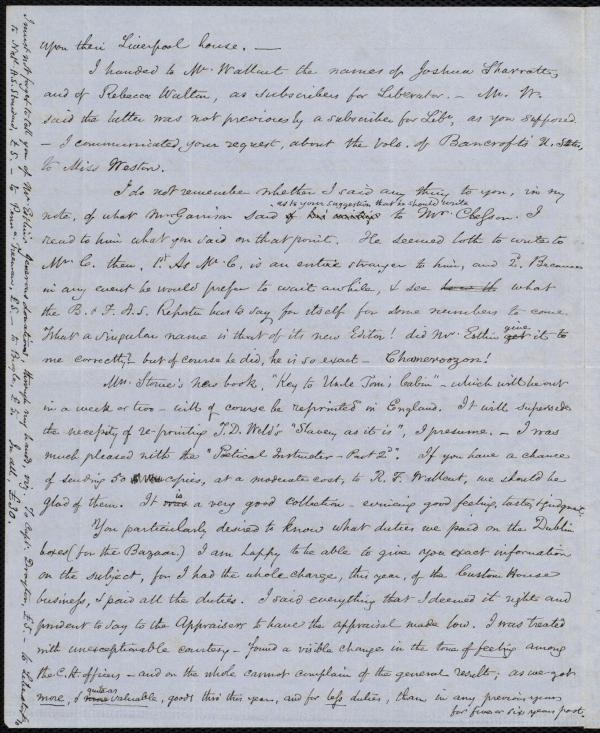 upon their Liverpool house. —
I handed to Mr. Wallcut the names of Joshua Sharratte,
and of Rebecca Walton, as subscribers for Liberator. — Mr. W.
said the latter was not previously a subscriber for Libr., as you supposed.
— I communicated your request, about the vols. of Bancroft's U. States,
to Miss Weston.
I do not remember whether I said any thing to you, in my
as to your suggestion that he should write
note, of what Mr. Garrison said to Mr. Chesson. I
read to him what you said on that point. He seemed loth to write to
Mr. C. then, 1st. As Mr. C. is an entire stranger to him, and 2. Because
in any event he would prefer to wait awhile, & see what
the B. & F. A. S. Reporter has to say for itself for some numbers to come.
What a singular name is that of its new Editor! did Mr. Estlin give it to
me correctly? but of course he did, he is so exact — Chamerovzon!
Mrs. Stowe's new book, "Key to Uncle Tom's Cabin" — which will be out
in a week or two — will of course be reprinted in England. It will supersede
the necessity of re-printing T. D. Weld's "Slavery as it is", I presume. — I was
much pleased with the "Poetical Instructor — Part 2d". If you have a chance
of sending 50 copies, at a moderate cost, to R. F. Wallcut, we should be
glad of them. It is a very good collection — evincing good feeling, taste, & judgmt.
You particularly desired to know what duties we paid on the Dublin
boxes (for the Bazaar.) I am happy to be able to give you exact information
on the subject, for I had the whole charge, this year, of the Custom House
business, & paid all the duties. I said everything that I deemed it right and
prudent to say to the Appraisers to have the appraisal made low. I was treated
with unexceptionable courtesy — found a visible change in the tone of feeling among
the C. H. officers — and on the whole cannot complain of the general result; as we got
more, & quite as valuable, goods this year, and for less duties, than in any previous year
for five or six years past.
I must not forget to tell you of Mr. Estlin's generous donations, through my hands, viz. To Capt. Drayton, £5. — to Liberator,
£5 — to Penna. Freeman, £5 — to £5. In all, £30.